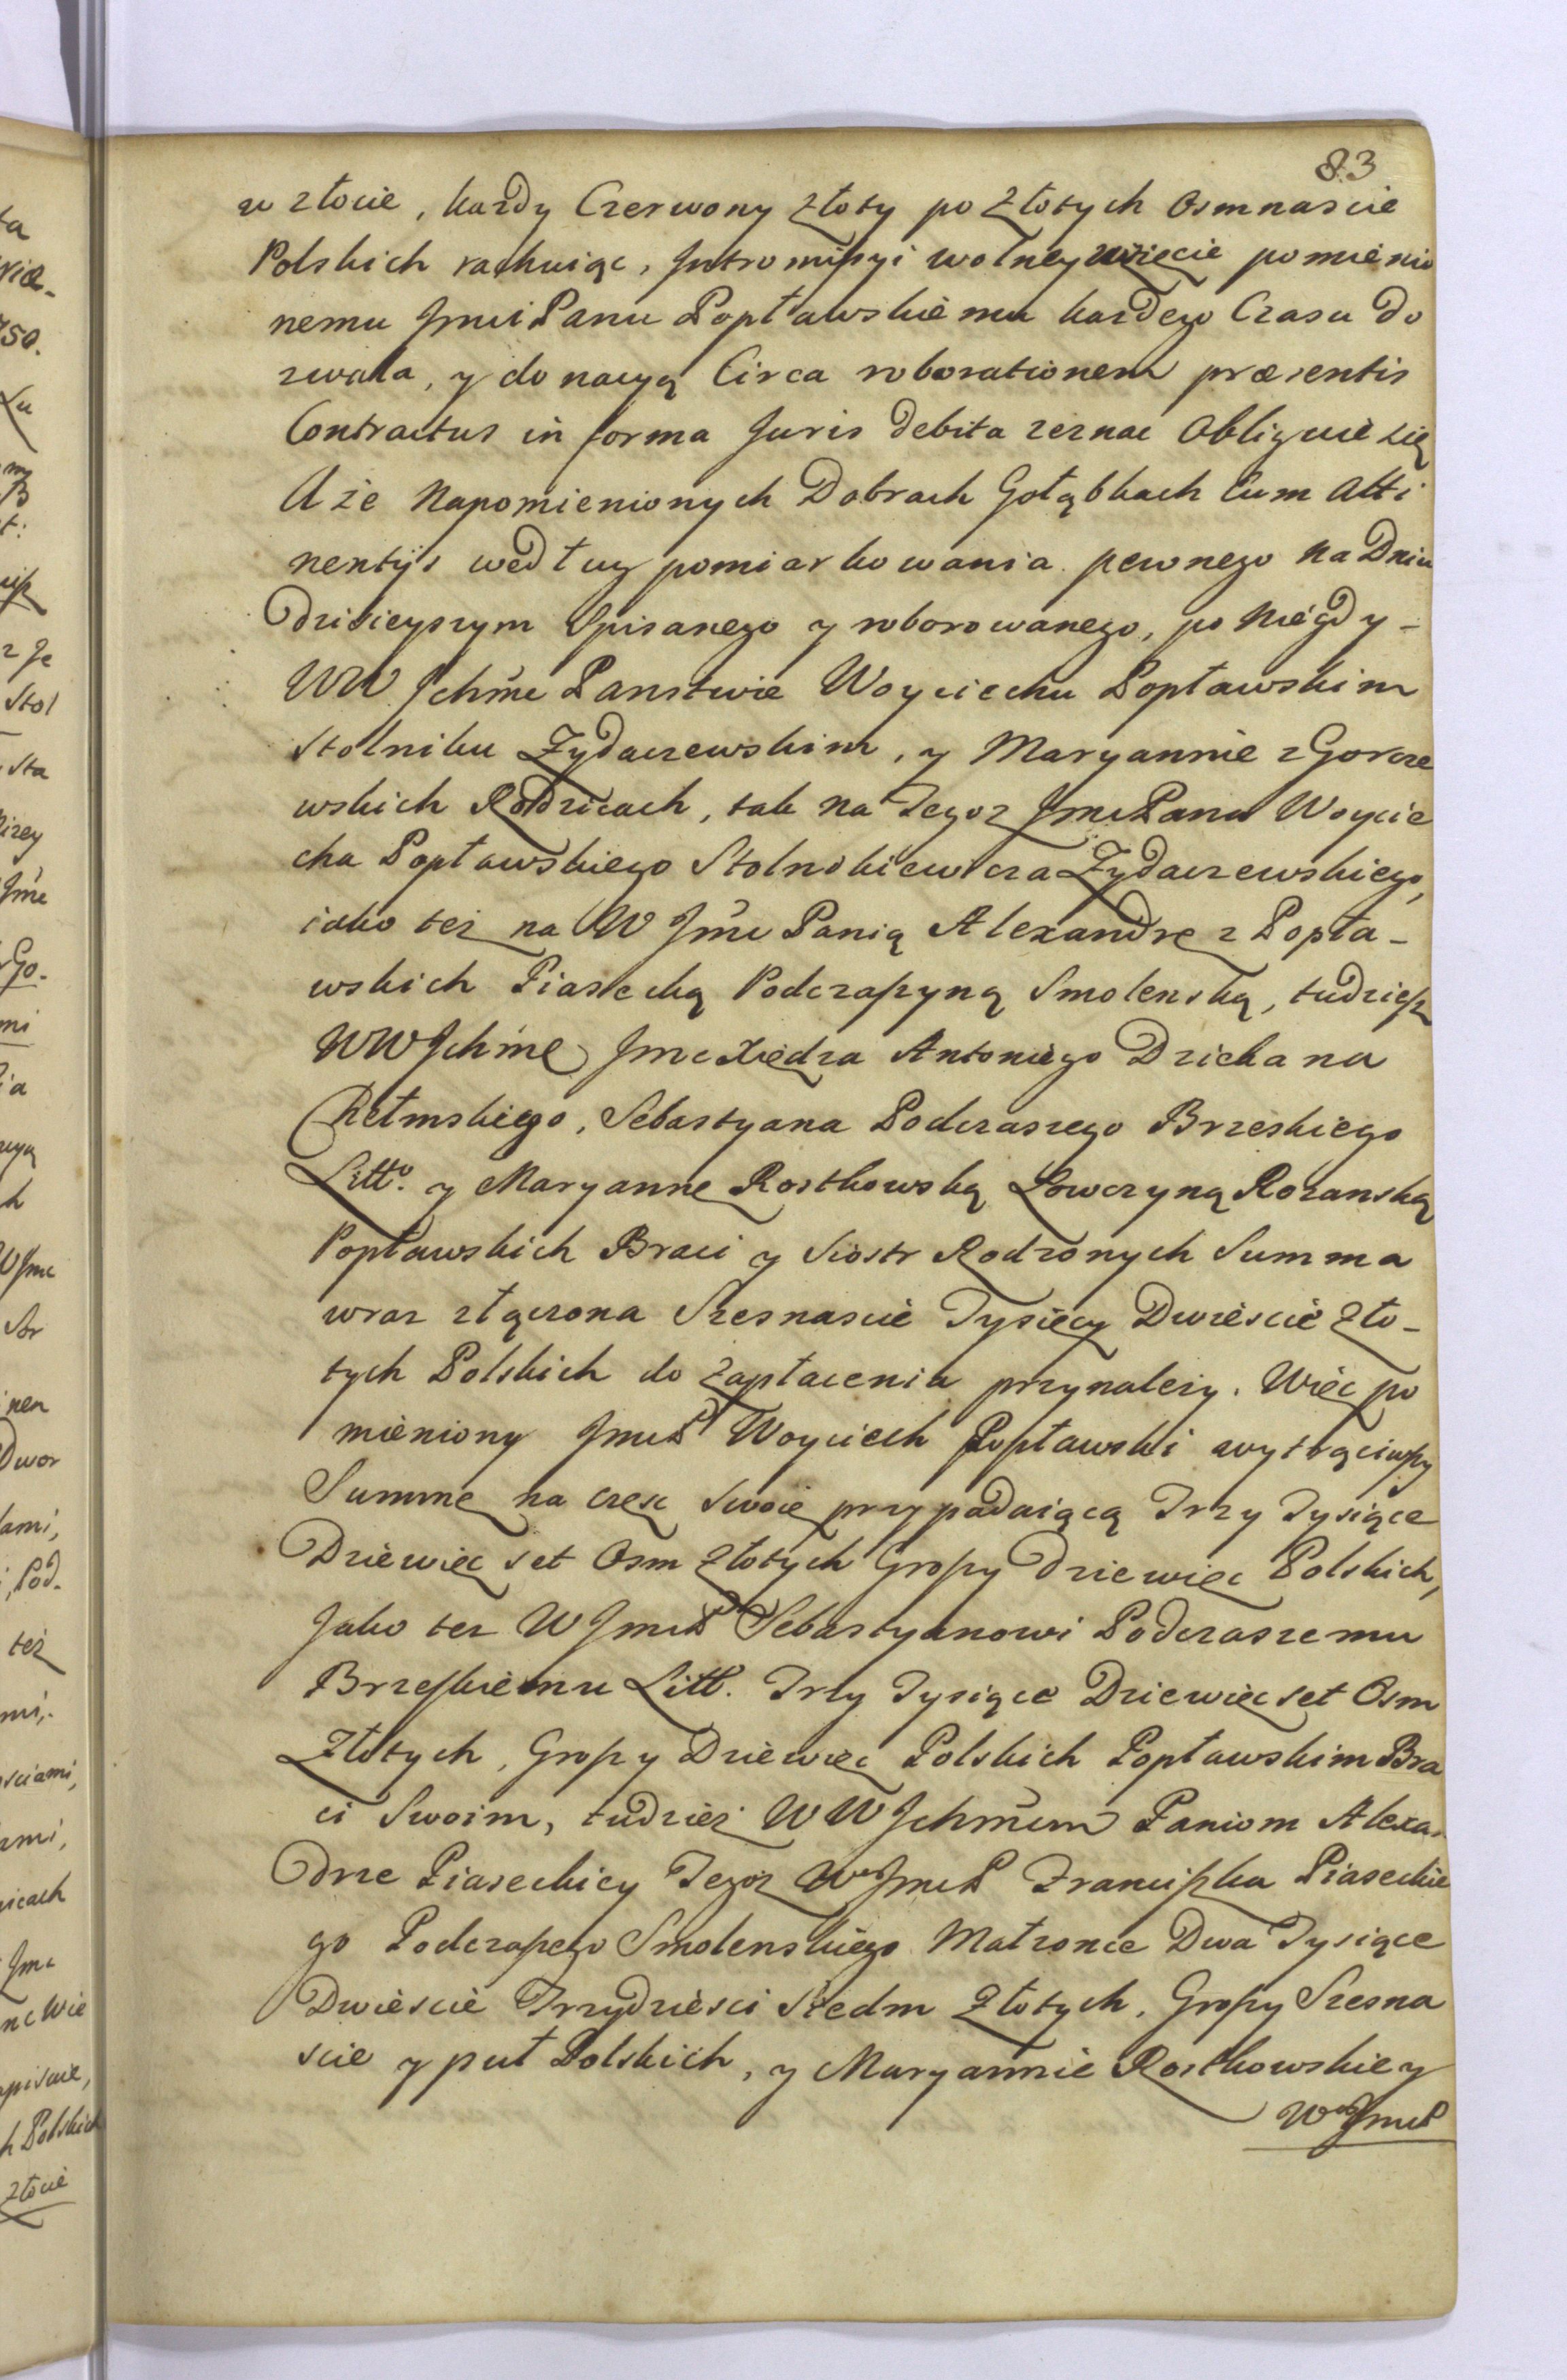 83
w złocie, kazdy Czerwony złoty po złotych Osmnascie
Polskich rachuiąc, Jntromissyi wolney wzięcie pomienio
nemu Jmci Panu Popławskiemu kazdego Czasu do
zwala, y donacyą Circa roborationem præsentis
Contractus in forma Juris debita zeznac Obliguie się
A że Napomienionych Dobrach Gołąbkach Cum Atti
nentÿs według pomiarkowania pewnego na Dniu
dzisieyszym Spisanego y roborowanego, po Niegdy-
WW Jchmc Panstwie Woyciechu Popławskim
Stolniku Zydaczewskim, y Maryannie z Gorcze
wskich Rodzicach, tak na Tegoz Jmc Pana Woycie
cha Popławskiego Stolnikiewicza Zydaczewskiego,
iako też na W Jmc Panią Alexandrę z Popła-
wskich Piasecką Podczaszyną Smolenską, tudziesz
WWJchmc Jmc Xiędza Antoniego Dziekana
Chełmskiego, Sebastyana Podczaszego Brzeskiego
Litto. y Maryannę Rostkowską Łowczyną Rozanską
Popławskich Braci y Siostr Rodzonych Summa
wraz złączona Szesnascie Tysięcy Dwiescie Zło-
tych Polskich do zapłacenia przynalezy. Więc po
mieniony JmcP Woyciech Popławski wytrąciwszy
Summę na częsc swoię przypadaiącą Trzy Tysiące
Dziewięc set Osm złotych Groszy dziewięc Polskich,
Jako tez W JmcP Sebastyanowi Podczaszemu
Brzeskiemu Litt. Trzy Tysiące Dziewięc set Osm
Złotych, Groszy Dziewięc Polskich Popławskim Bra
ci Swoim, tudzież WW Jchmcm Paniom Alexa
drze Piaseckiey Tegoz Wo JmcP Franciszka Piaseckie
go Podczaszego Smolenskiego Małzonce Dwa Tysiące
Dwiescie Trzydziesci siedm Złotych, Groszy Szesna
scie y puł Polskich, y Maryannie Rostkowskiey
Wo JmcP